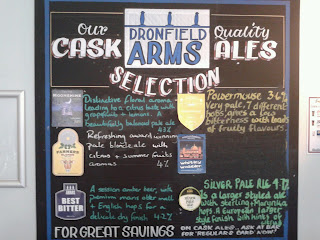 Our
Quality
DRONFIELD
ARMS
CASK
ALES
SELECTION
MOONSHINE
Distinctive floral aroma
leading to a citrus taste with
grapefruit + lemons. A
beautifully balanced pale ale
4.3%
Powermouse 3.4%
Very pale, 7 different
hops gives a low
bitterness with loads
of fruity flavours.
FARMERS
Refreshing award winning
pale blonde ale with
citrus + summer fruits
aromas 4%
BEST
BITTER
A session amber beer, with
premium maris otter malt
+ English hops for a
delicate dry finish 4.2%
SILVER PALE ALE 4.7%
is a larger styled ale
with sterling + Marynka
hops. A European larger
style finish with hints of
FOR GREAT SAVINGS
ON CASK ALES, ASK AT BAR
FOR REGULARS CARD NOW!